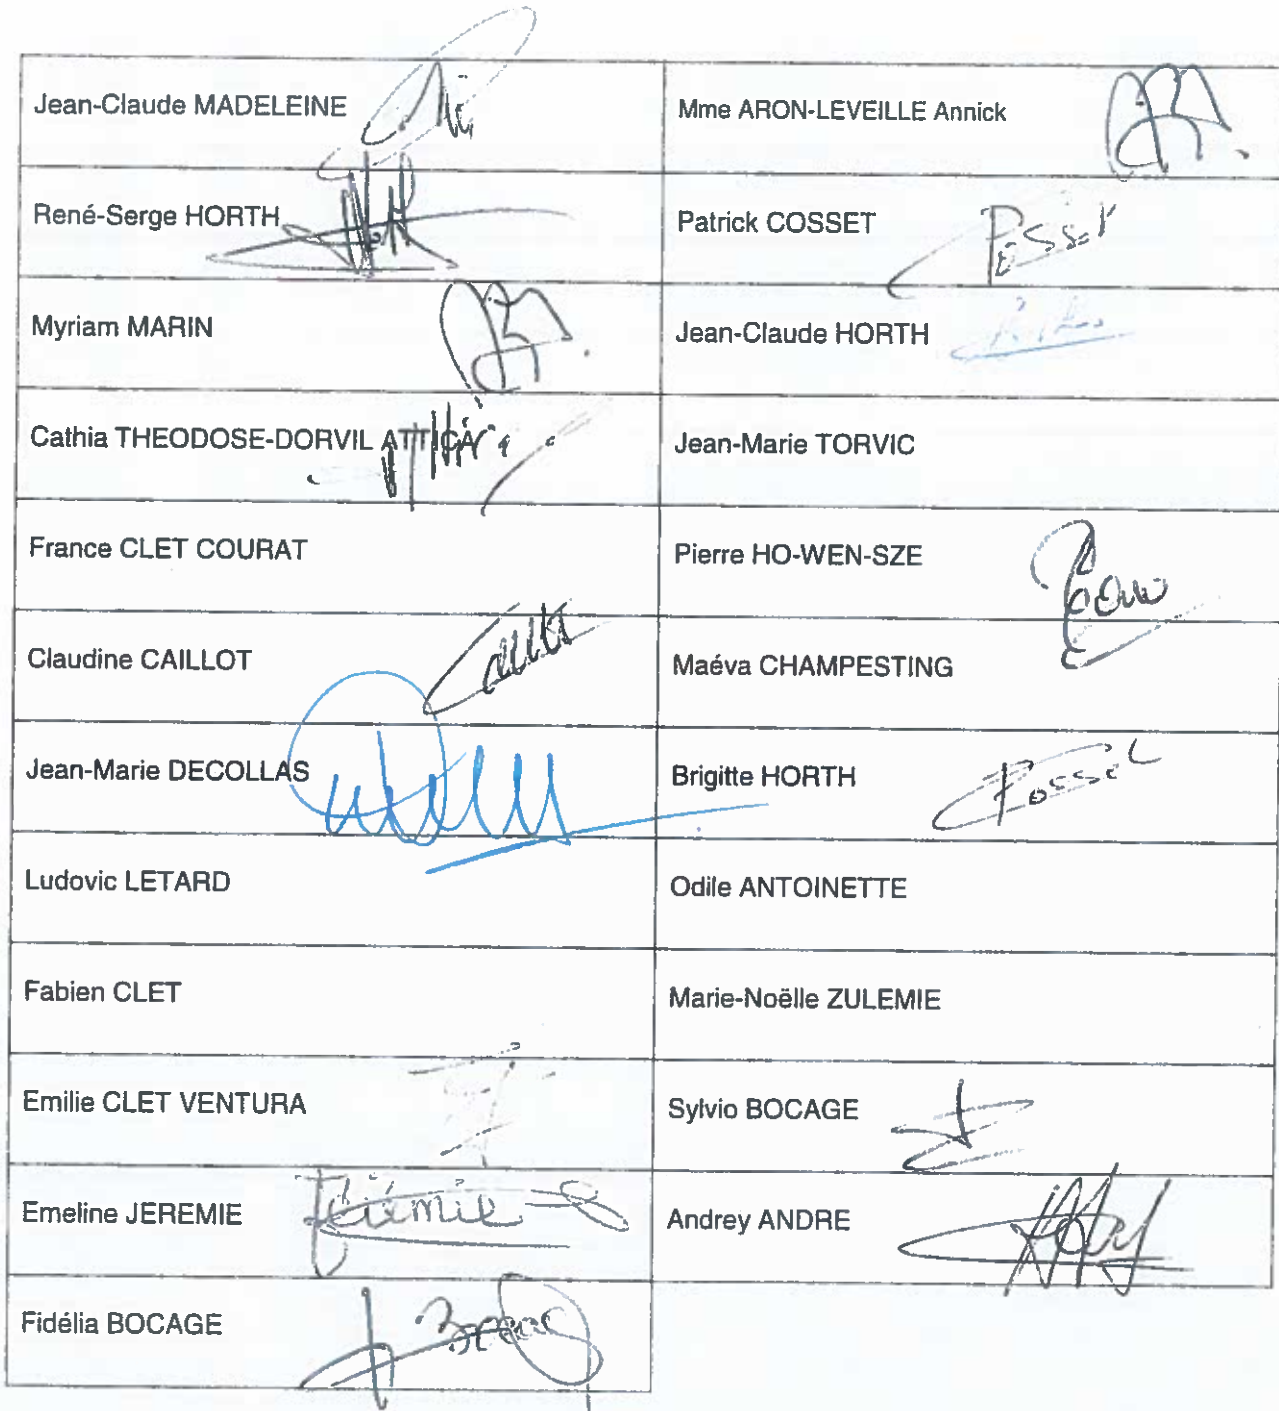 Jean-Claude MADELEINE
Mme ARON-LEVEILLE Annick
René-Serge HORTH
Patrick COSSET
Cosset
Myriam MARIN
Jean-Claude HORTH
Cathia THEODOSE-DORVIL ATTICA
Jean-Marie TORVIC
France CLET COURAT
Pierre HO-WEN-SZE
Claudine CAILLOT
Maéva CHAMPESTING
Jean-Marie DECOLLAS
Brigitte HORTH
Ludovic LETARD
Odile ANTOINETTE
Fabien CLET
Marie-Noëlle ZULEMIE
Emilie CLET VENTURA
Sylvio BOCAGE
Emeline JEREMIE
Jérémie
Andrey ANDRE
Fidélia BOCAGE